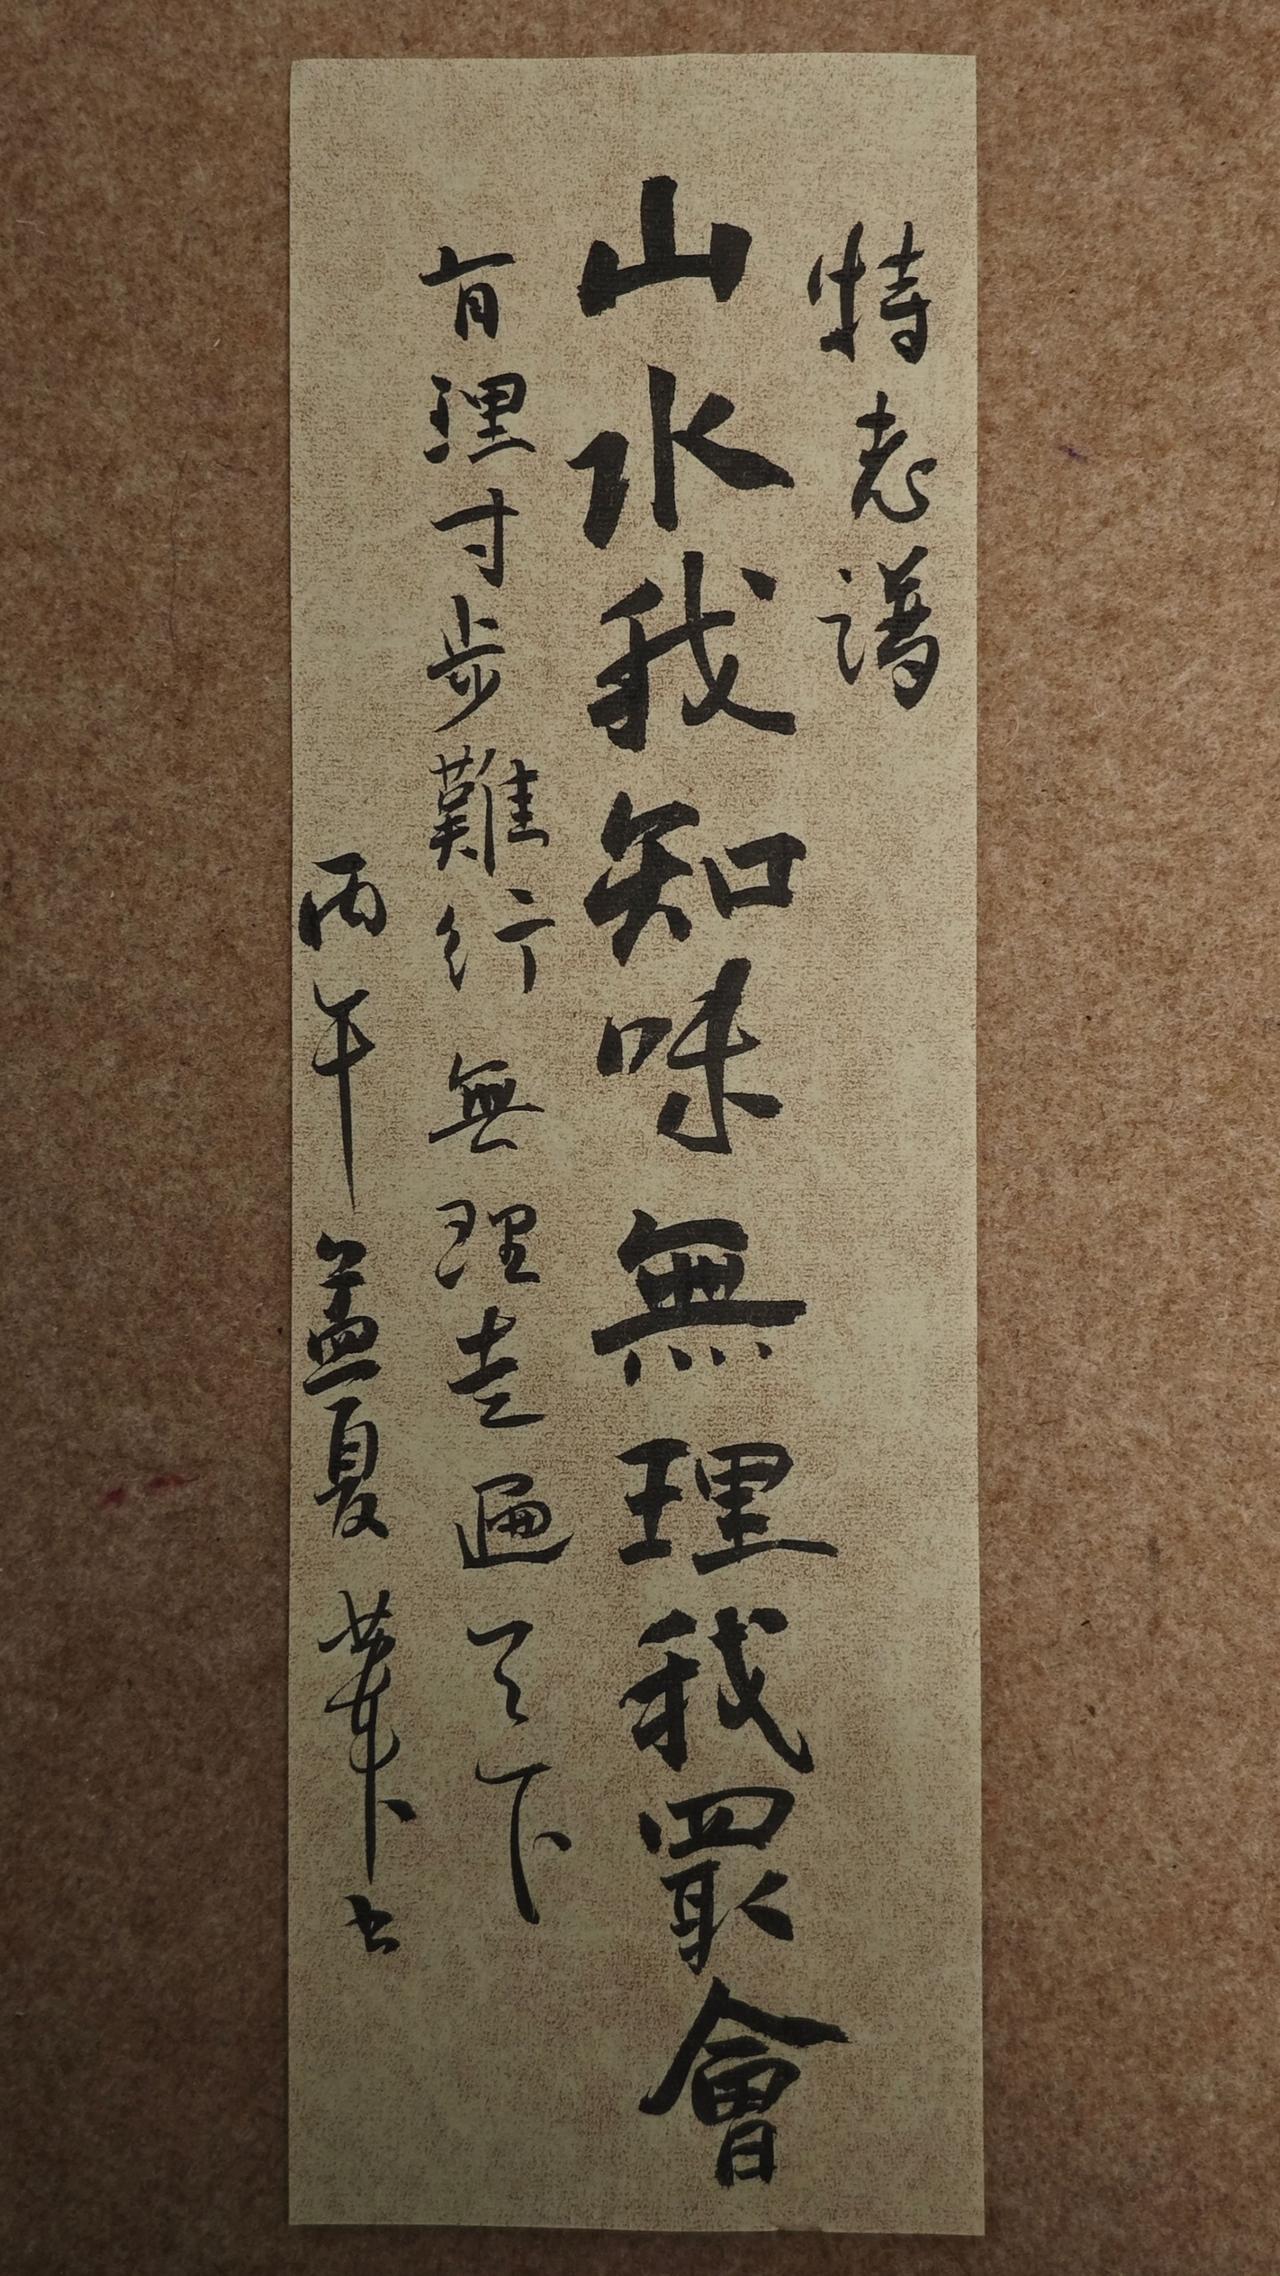 特志譜
山水我知味無理我最會
有理寸步難行無理走遍天下
丙午孟夏華書